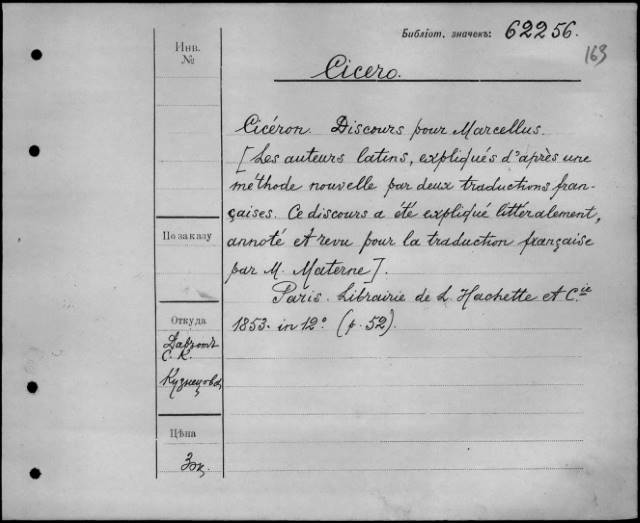 Библіот. значекъ: 62256.
163
Инв.
№
Cicero.
Cicéron. Discours pour Marcellus.
[Les auteurs latins, expliqués d'après une
méthode nouvelle par deux traductions fran-
çaises. Ce discours a été expliqué littéralement,
annoté et revu pour la traduction française
par M. Materne].
Paris. Librairie de L. Hachette et C.ie
1853. in 12° (p. 52).
По заказу
Откуда
С. К.
Кузнецовъ
Цѣна